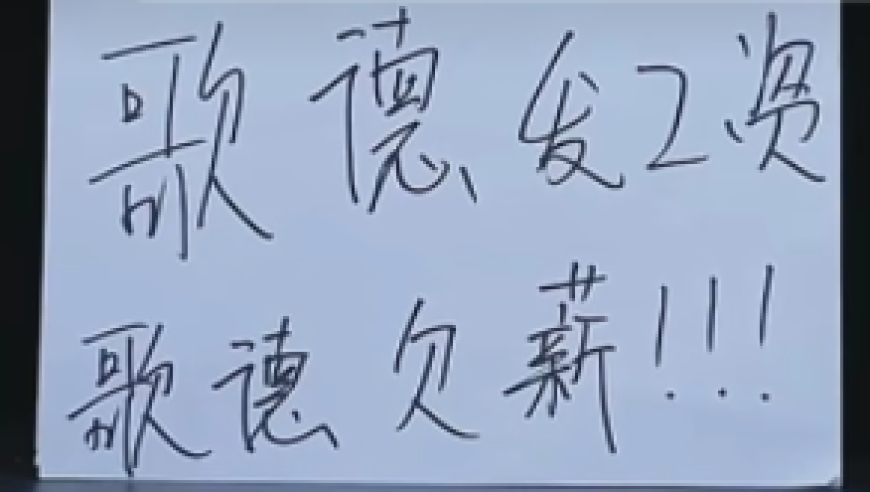 歌德发工资
歌德欠薪!!!